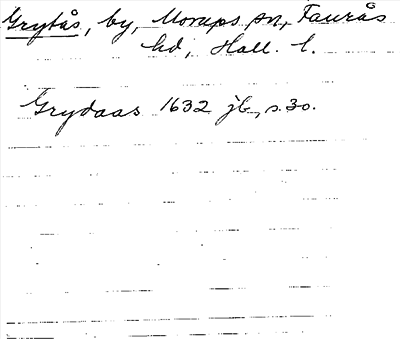 Grytås, by, Morups sn, Faurås
hd, Hall. l.
Grydaas 1632 jb, s. 30.